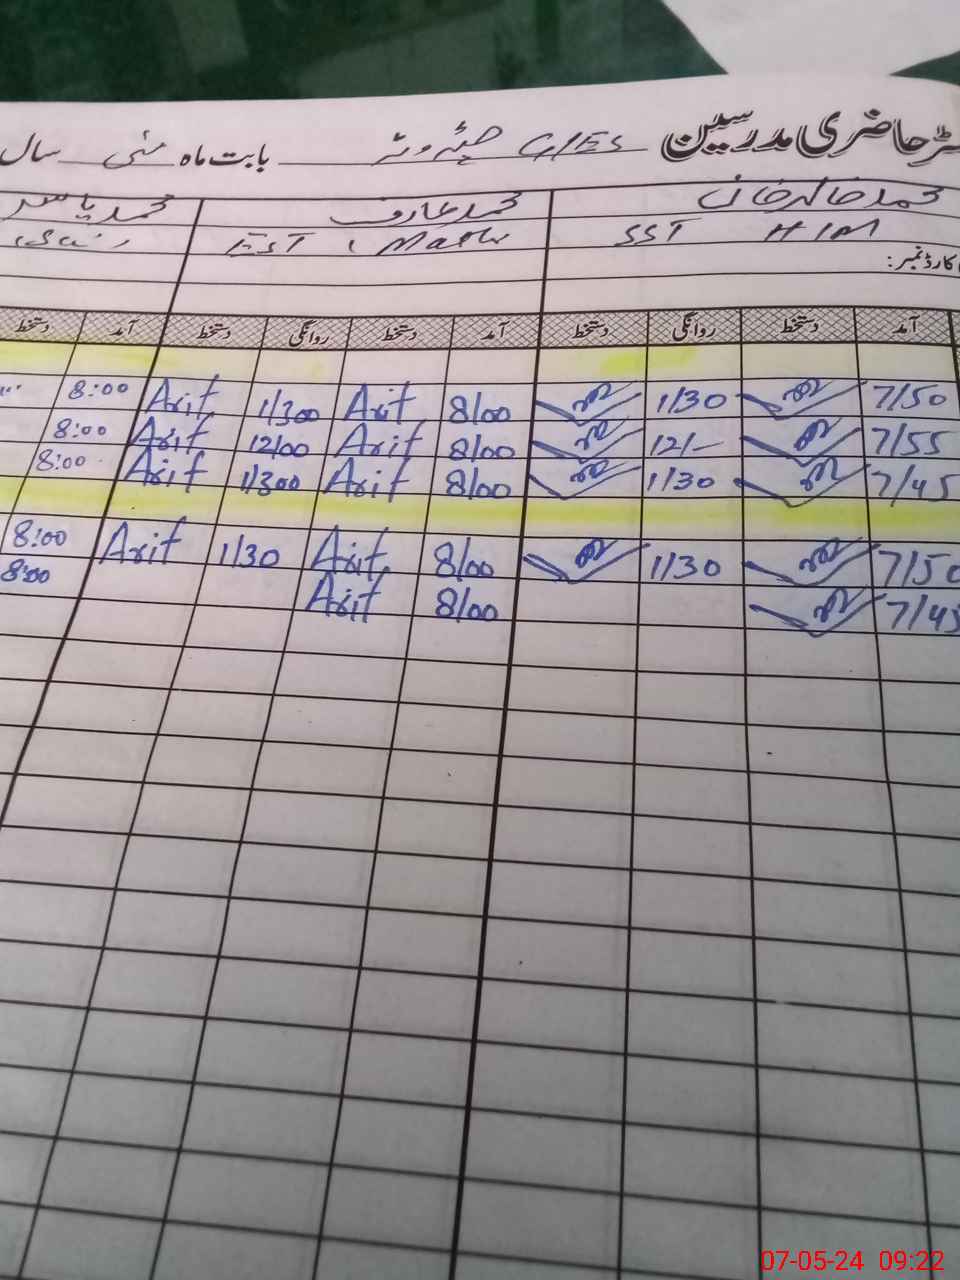 حاضری مدرسین GMS بابت ماہ مئی سال
محمد خالد خان محمد عارف محمد یاسر
SST H/M EST Math
کارڈ نمبر:
آمد دستخط روانگی دستخط آمد دستخط روانگی دستخط آمد دستخط
7/50 1/30 8/00 Arif 1/300 Arif 8:00
7/55 12/- 8/00 Arif 12/00 Arif 8:00
7/45 1/30 8/00 Arif 1/300 Arif 8:00
7/50 1/30 8/00 Arif 1/30 Arif 8:00
7/45 8/00 Arif 8:00
07-05-24 09:22